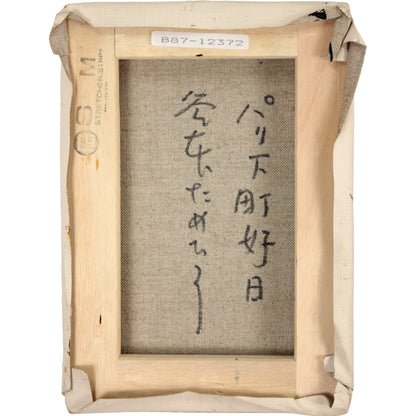 B87-12372
S M
パリ下町好日
谷本ためひろ